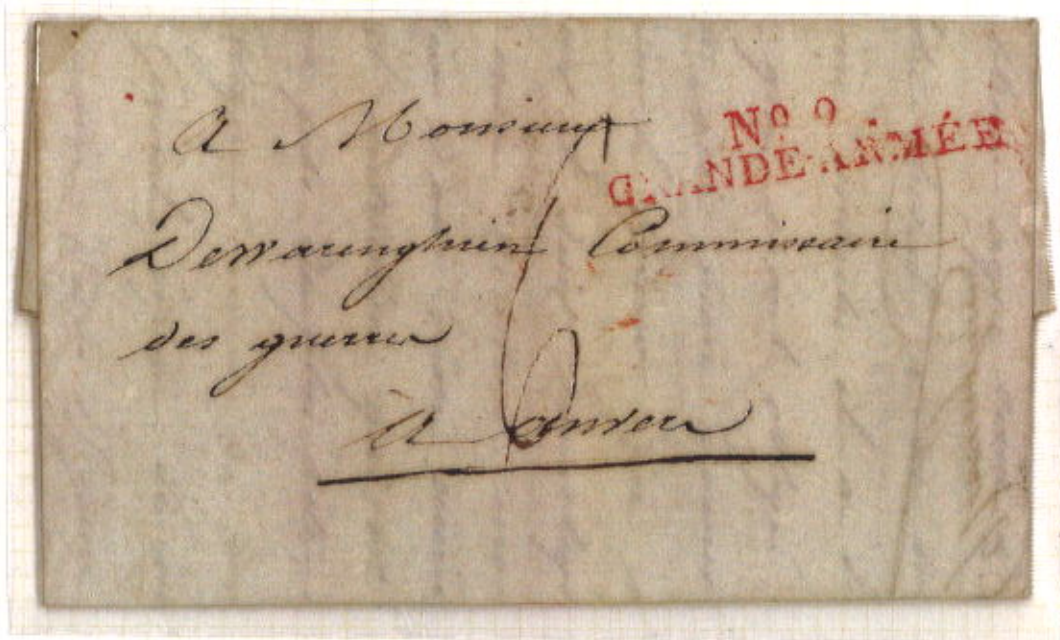 A Monsieur
No. 9.
GRANDE-ARMÉE
Dewarenghuien Commissaire
des guerres
à Anvers
6